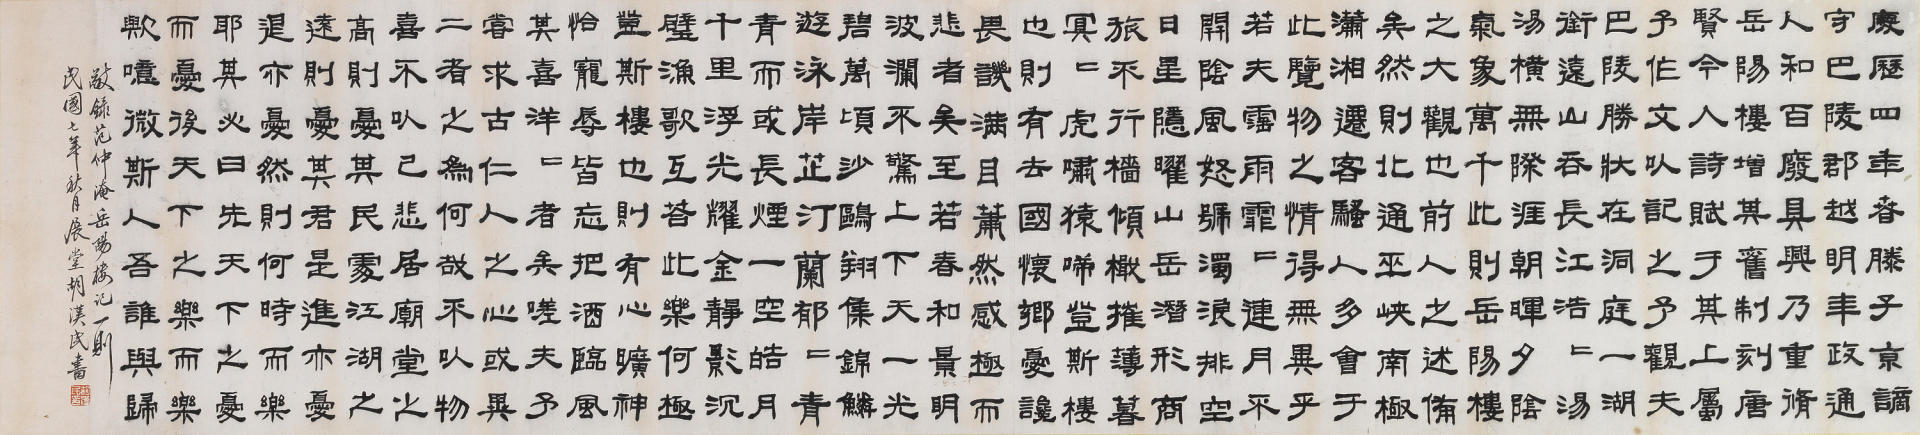 慶歷四年春滕子京謫
守巴陵郡越明年政通
人和百廢具興乃重脩
岳陽樓增其舊制刻唐
賢今人詩賦于其上屬
予作文以記之予觀夫
巴陵勝狀在洞庭一湖
銜遠山吞長江浩〻湯
湯橫無際涯朝暉夕陰
氣象萬千此則岳陽樓
之大觀也前人之述備
矣然則北通巫峽南極
瀟湘遷客騷人多會于
此覽物之情得無異乎
若夫霪雨霏〻連月不
開陰風怒號濁浪排空
日星隱曜山岳潛形商
旅不行檣傾檝摧薄暮
冥〻虎嘯猿啼登斯樓
也則有去國懷鄉憂讒
畏譏滿目蕭然感極而
悲者矣至若春和景明
波瀾不驚上下天一光
碧萬頃沙鷗翔集錦鱗
遊泳岸芷汀蘭郁〻青
青而或長煙一空皓月
千里浮光耀金靜影沉
璧漁歌互答此樂何極
登斯樓也則有心曠神
怡寵辱皆忘把酒臨風
其喜洋〻者矣嗟夫予
嘗求古仁人之心或異
二者之為何哉不以物
喜不以己悲居廟堂之
高則憂其民處江湖之
遠則憂其君是進亦憂
退亦憂然則何時而樂
耶其必曰先天下之憂
而憂後天下之樂而樂
歟噫微斯人吾誰與歸
敬錄范仲淹岳陽樓記一則
民國七年秋月展堂胡漢民書